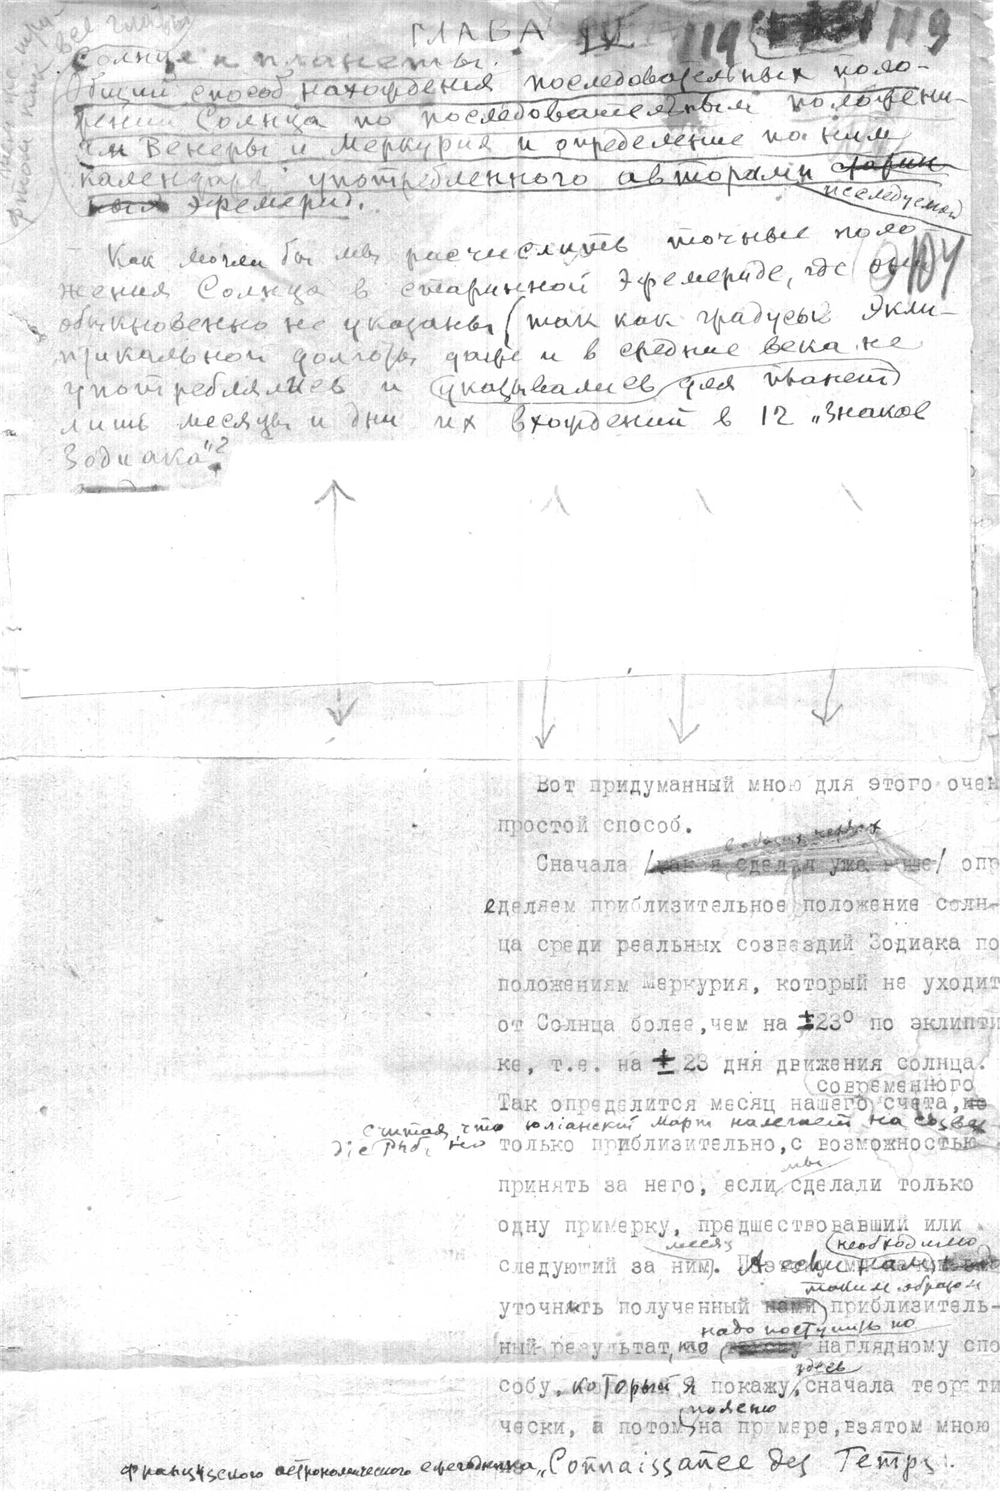 ГЛАВА IV 119 119
все главы
Солнце и планеты.
Общий способ нахождения последовательных поло-
жений Солнца по последовательным положени-
ям Венеры и Меркурия и определение по ним
календаря, употребленного авторами
исследуемой
эфемерид.
Как могли бы мы расчислить точные поло-
жения Солнца в старинной эфемериде, где они
обыкновенно не указаны (так как градусы экли-
птикальной долготы даже и в средние века не
употреблялись и указывались для планет
лишь месяцы и дни их вхождений в 12 „Знаков
Зодиака"?
Вот придуманный мною для этого очен
простой способ.
Сначала /как я сделал уже выше/ опр
еделяем приблизительное положение солн-
ца среди реальных созвездий Зодиака по
положениям Меркурия, который не уходит
от Солнца более, чем на ±23° по эклипти
ке, т.е. на ± 23 дня движения солнца.
современного
Так определится месяц нашего счета, но
считая, что юлианский март налегает на созвез
дие Рыб, но только приблизительно, с возможностью
мы
принять за него, если сделали только
одну примерку, предшествовавший или
месяц необходимо
следующий за ним. А если нам
таким образом
уточнять полученный нами приблизитель-
надо поступить по
ный результат, то наглядному спо
здесь
собу, который я покажу, сначала теорети
поясню
чески, а потом на примере, взятом мною
французского астрономического ежегодника „Connaissance des Temps".